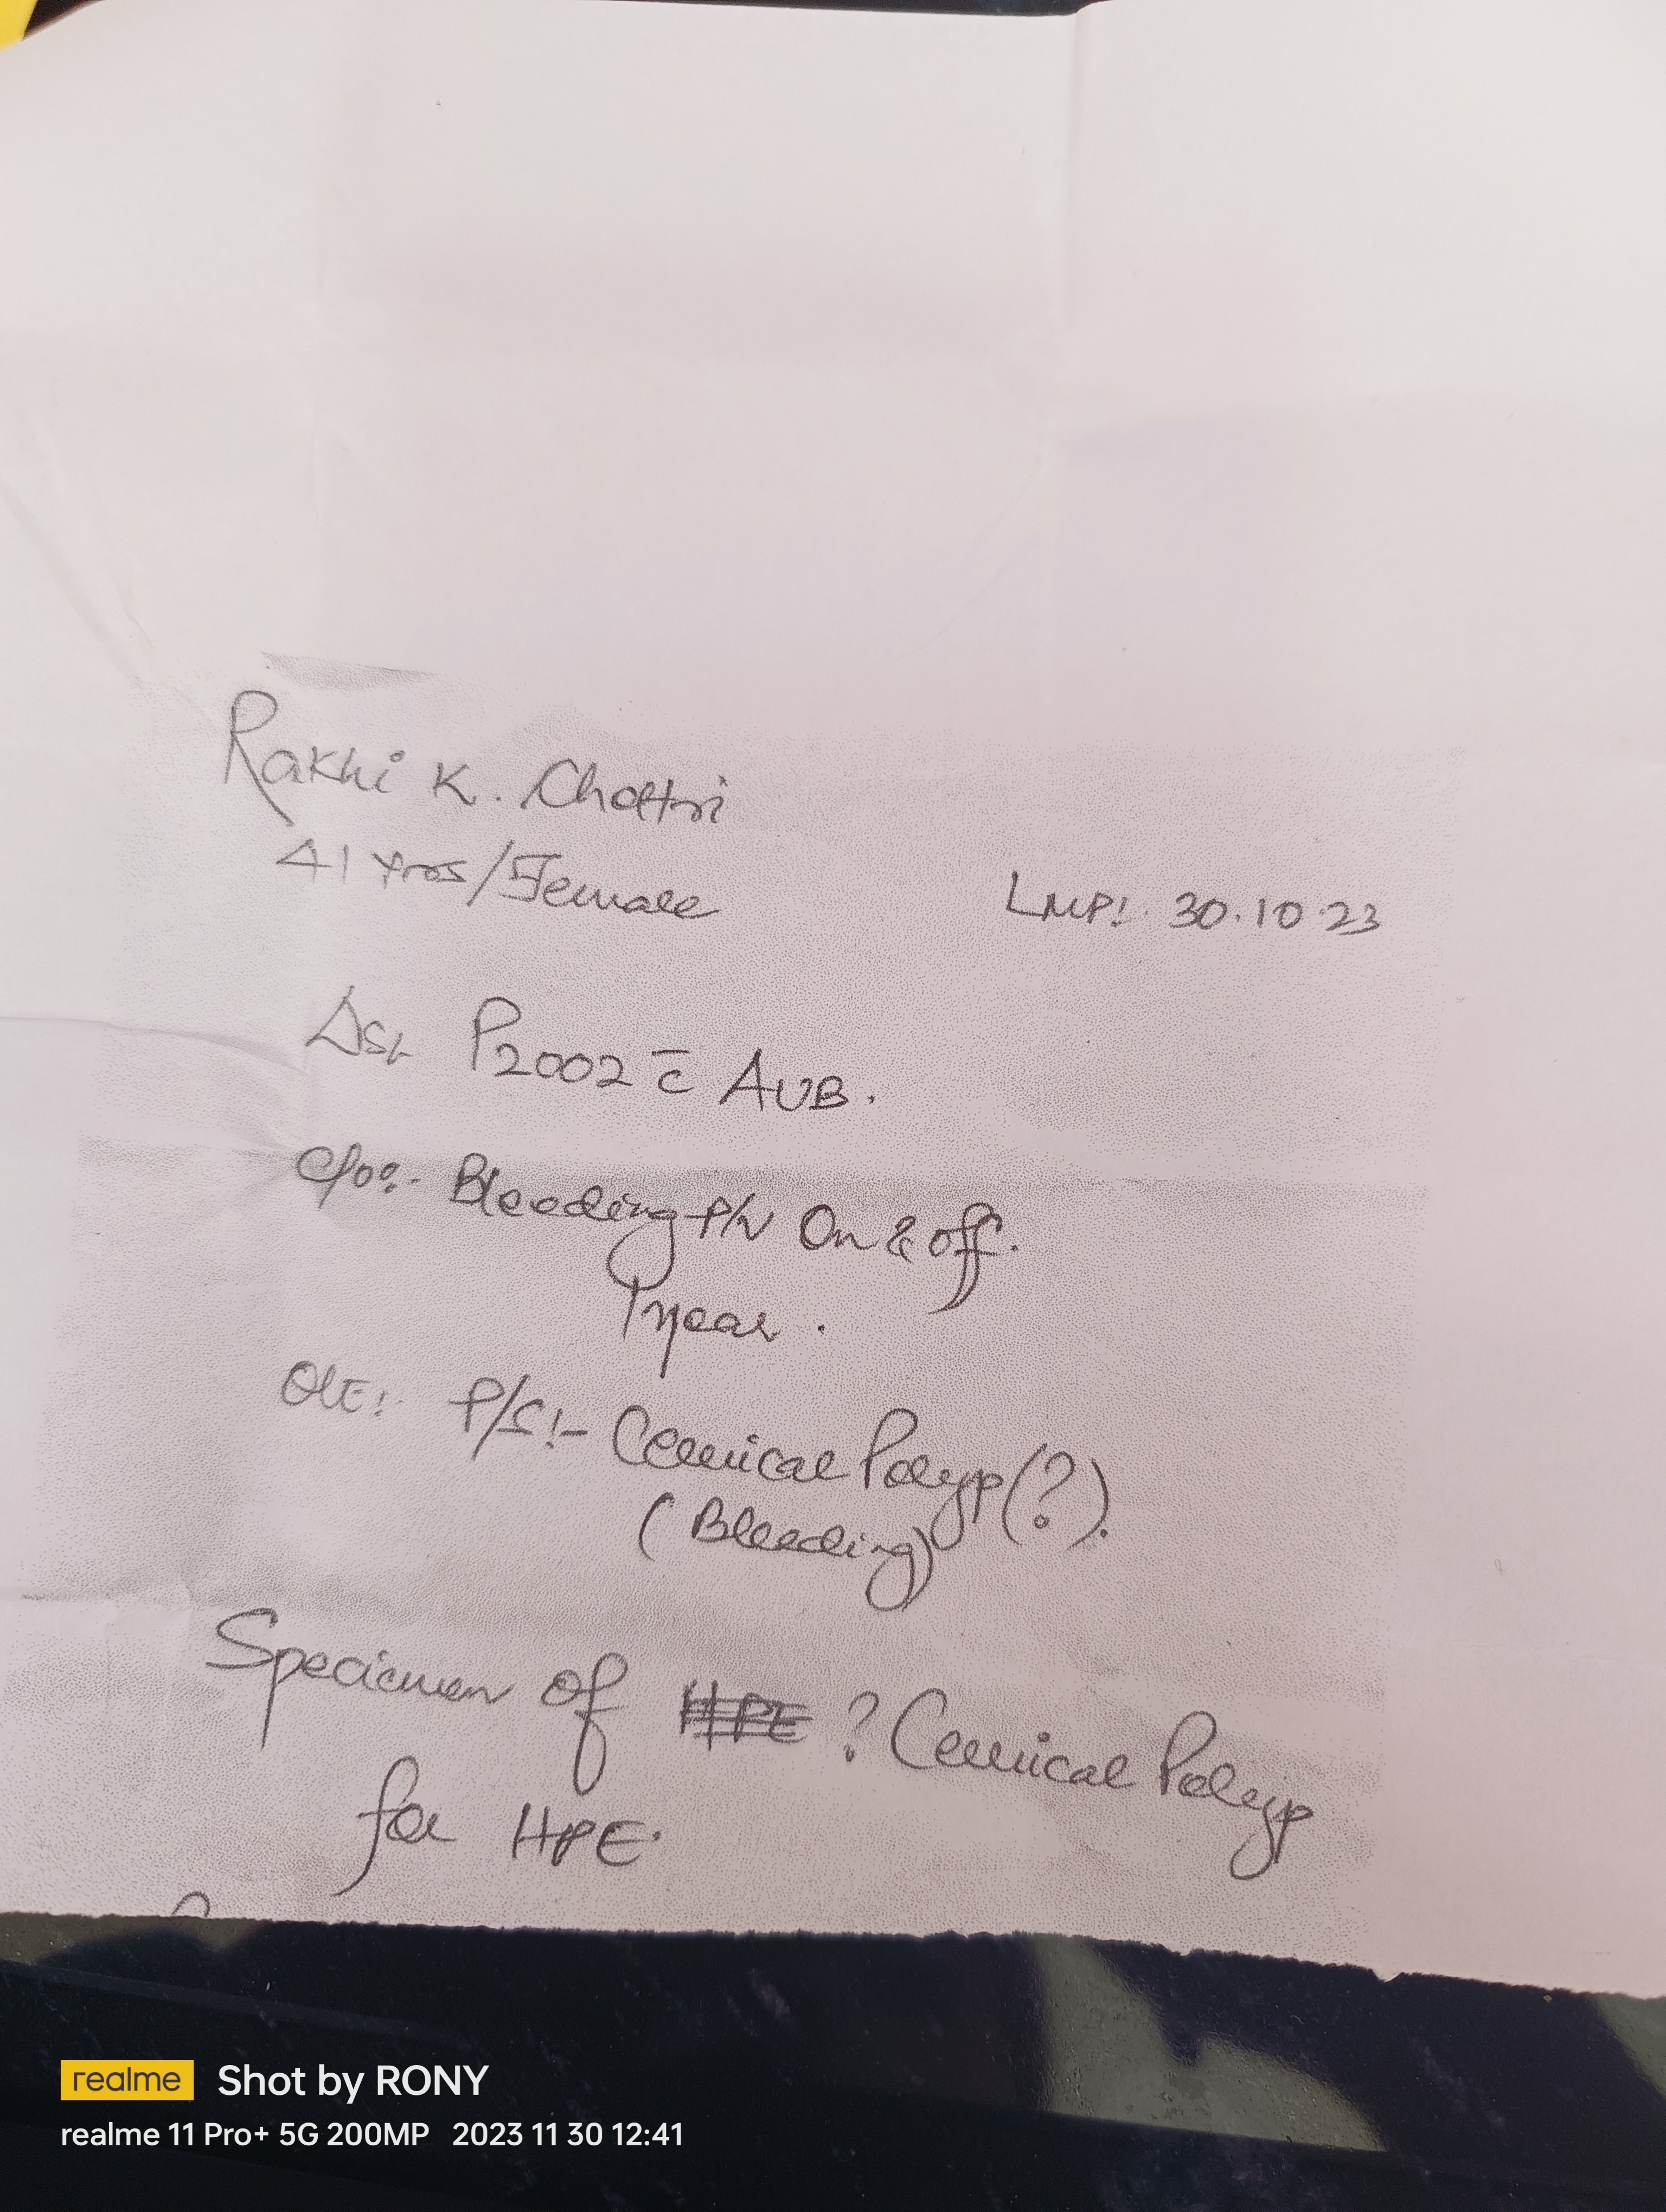 Rakhi K. Chettri
41 Yrs/Female
LMP:- 30.10.23
Δsis P2002 c̄ AUB.
C/o:- Bleeding P/V On & off.
1 year.
O/E:- P/S:- Cervical Polyp (?).
(Bleeding)
Specimen of ? Cervical Polyp
for HPE.
realme Shot by RONY
realme 11 Pro+ 5G 200MP 2023 11 30 12:41